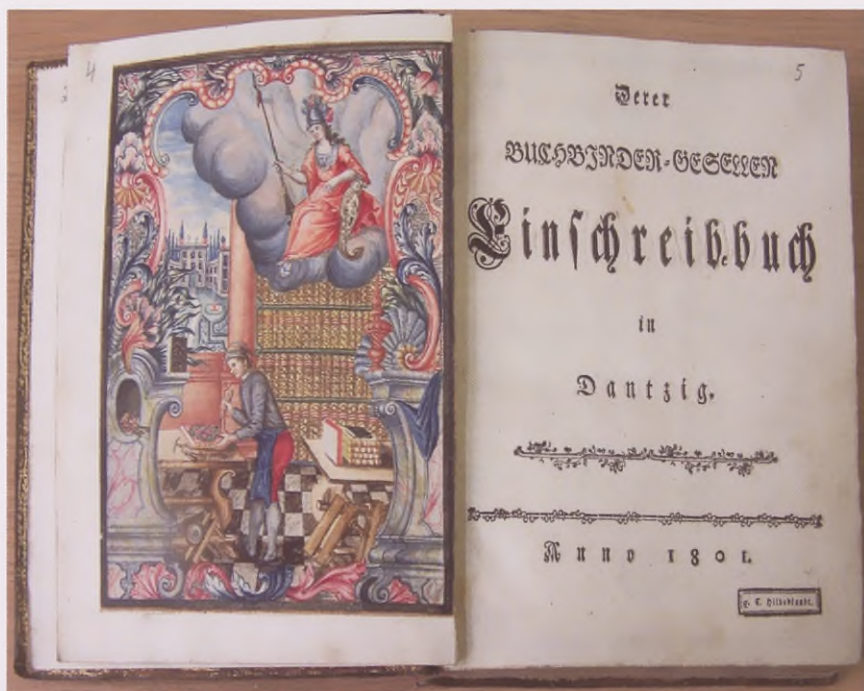 4
5
Derer
BUCHBINDER-GESELLEN
Einschreib.buch
in
Dantzig.
Anno 1801.